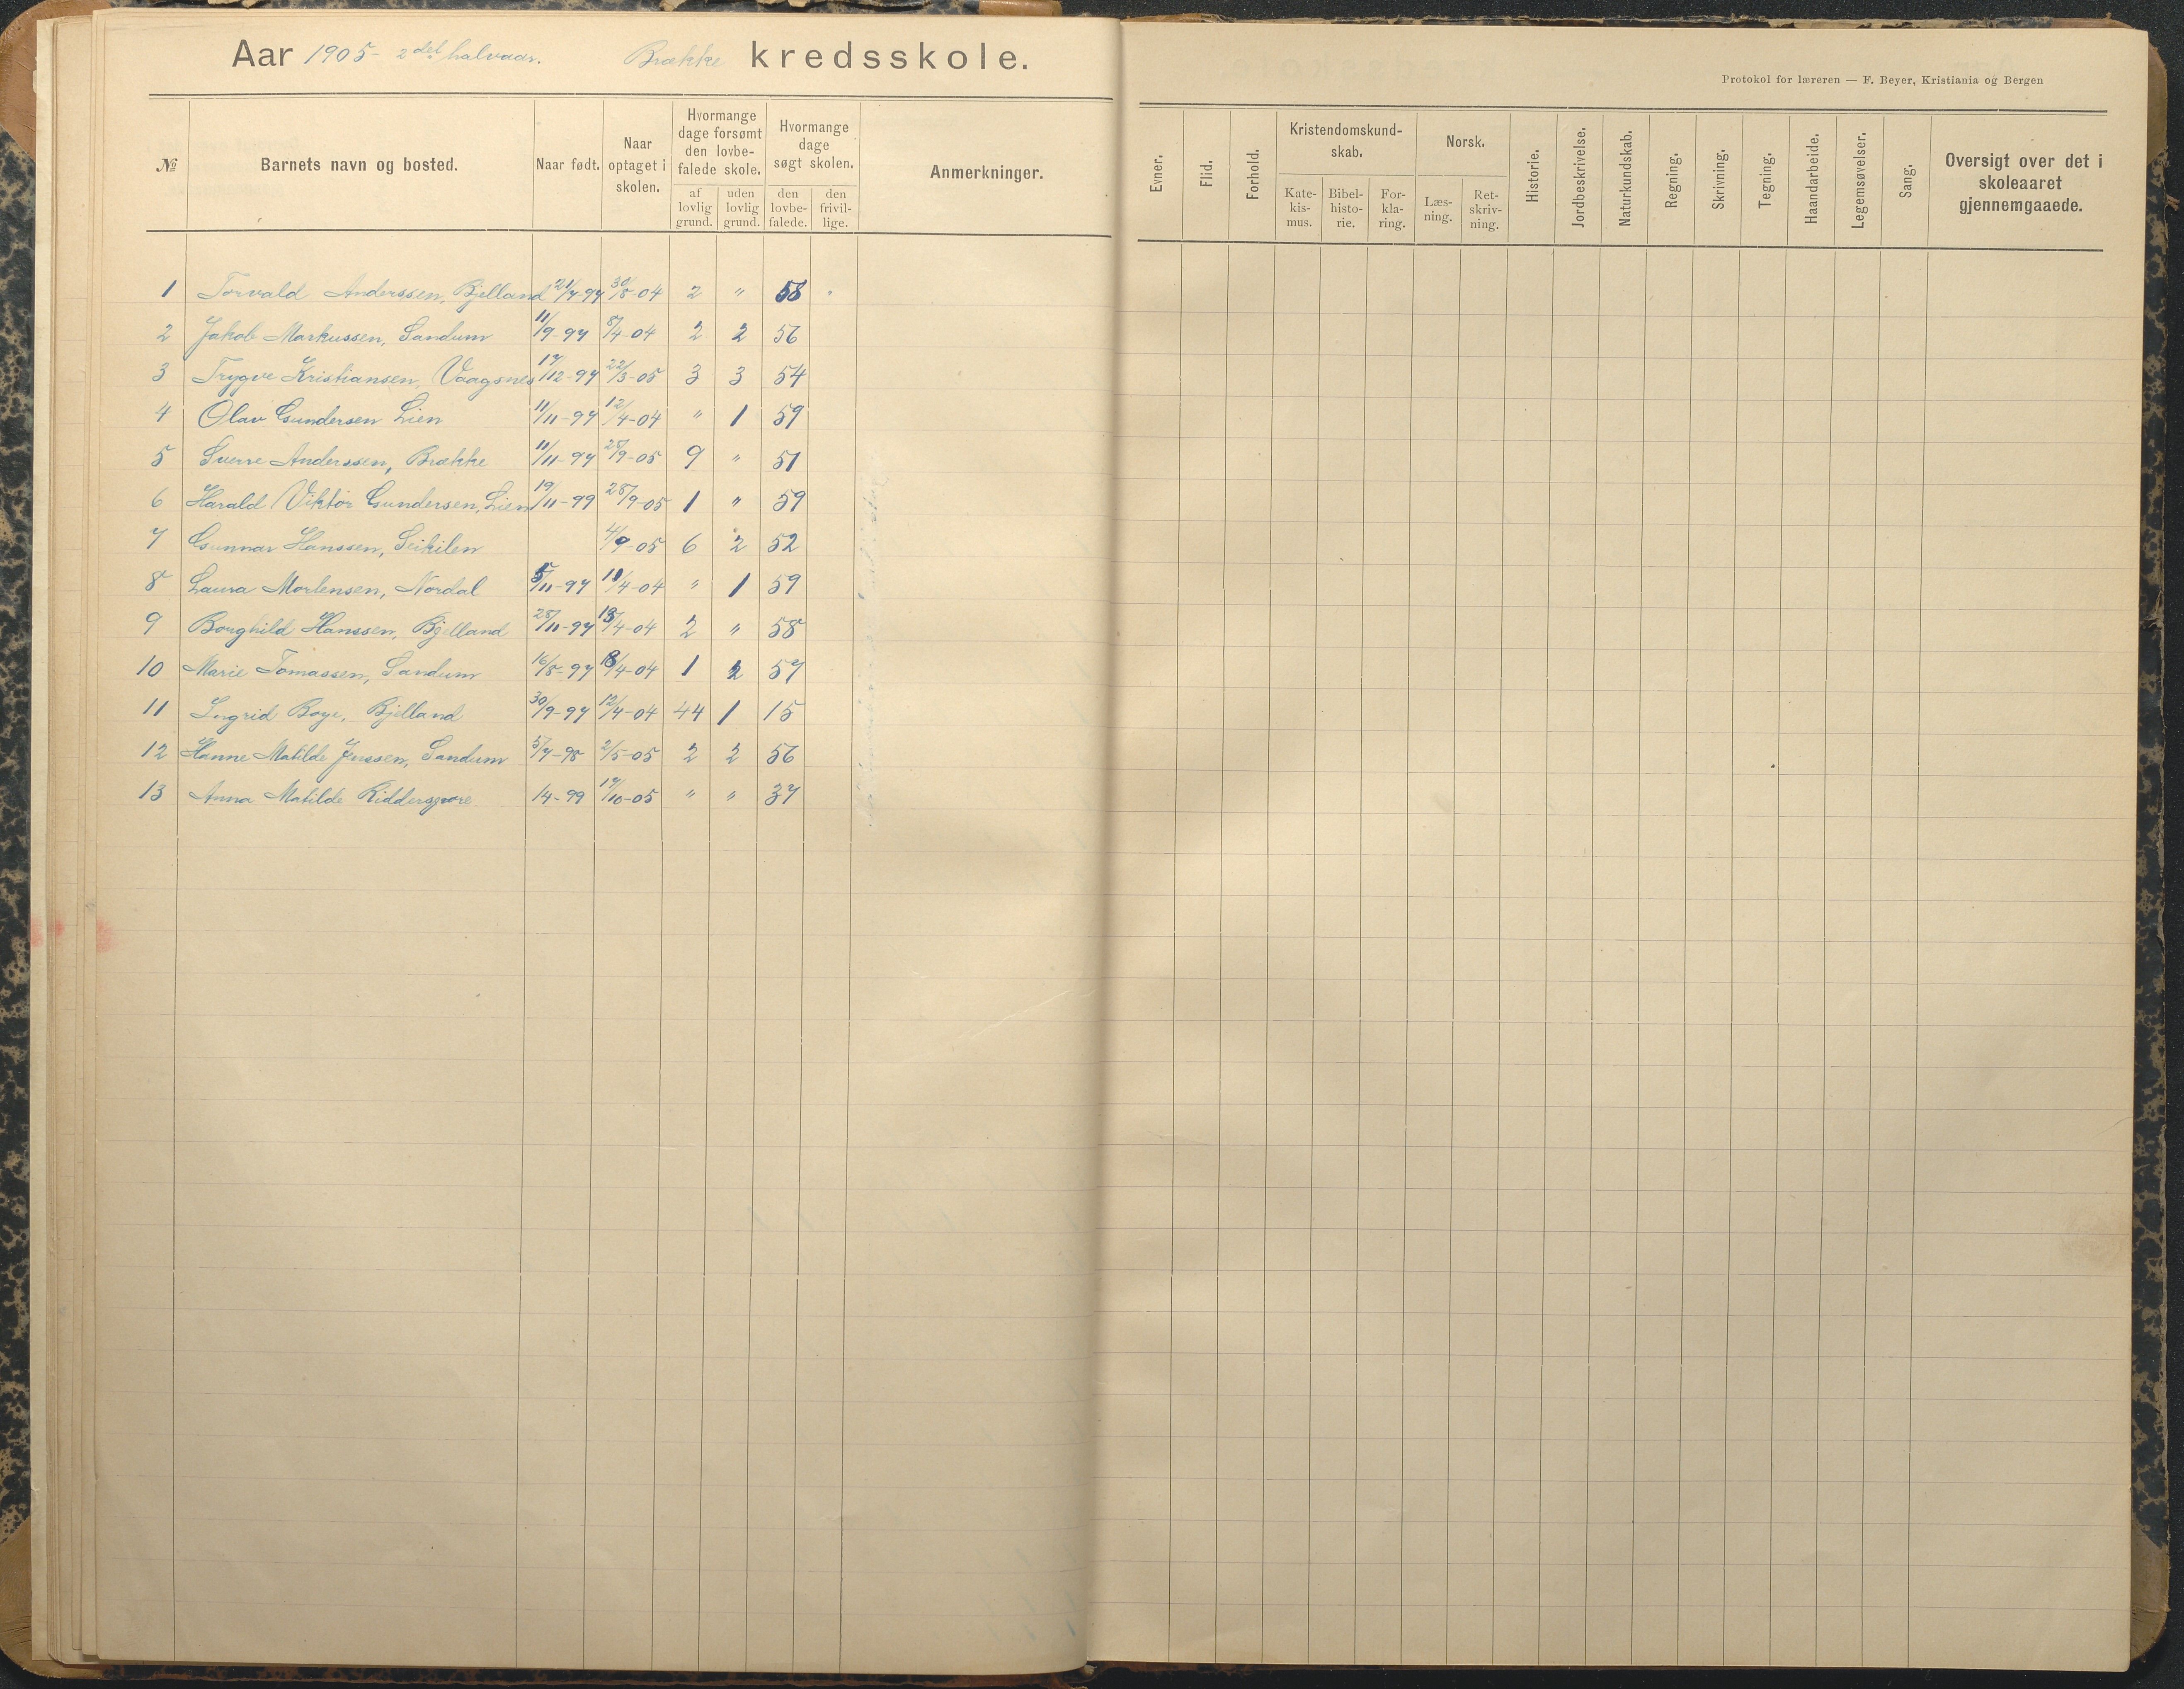 Aar 1905- 2det halvaar. Brække kredsskole.
Protokol for læreren — F. Beyer, Kristiania og Bergen
№ Barnets navn og bosted. Naar født. Naar optaget i skolen. Hvormange dage forsømt den lovbefalede skole. af lovlig grund. uden lovlig grund. Hvormange dage søgt skolen. den lovbefalede. den frivillige. Anmerkninger.
Evner. Flid. Forhold. Kristendomskundskab. Katekismus. Bibelhistorie. Forklaring. Norsk. Læsning. Retskrivning. Historie. Jordbeskrivelse. Naturkundskab. Regning. Skrivning. Tegning. Haandarbeide. Legemsøvelser. Sang. Oversigt over det i skoleaaret gjennemgaaede.
1 Torvald Anderssen, Bjelland 21/7-97 30/8-04 2 " 58 "
2 Jakob Markussen, Sandum 11/9-97 8/4-04 2 2 56
3 Trygve Kristiansen, Vaagsnes 17/12-97 22/3-05 3 3 54
4 Olav Gundersen Lien 11/11-97 12/4-04 " 1 59
5 Sverre Anderssen, Brække 11/11-97 28/9-05 9 " 51
6 Harald Viktor Gundersen, Lien 19/11-99 28/9-05 1 " 59
7 Gunnar Hanssen, 4/9-05 6 2 52
8 Laura Mortensen, Nordal 5/11-97 11/4-04 " 1 59
9 Borghild Hanssen, Bjelland 28/11-97 13/4-04 2 " 58
10 Marie Tomassen, Sandum 16/8-97 /4-04 1 2 57
11 Ingrid Boye, Bjelland 30/9-97 12/4-04 44 1 15
12 Hanne Matilde Jenssen, Sandum 5/7-98 2/5-05 2 2 56
13 Anna Matilde Ridderspore 14-99 17/10-05 " " 37